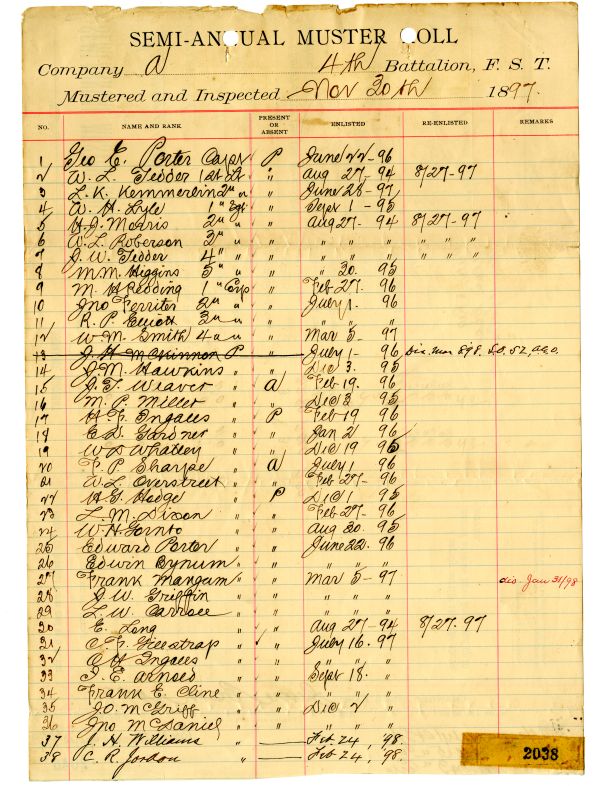 SEMI-ANNUAL MUSTER ROLL
Company A 4th Battalion, F. S. T.
Mustered and Inspected Nov 30th 1897.
NO. NAME AND RANK PRESENT OR ABSENT ENLISTED RE-ENLISTED REMARKS
1 Geo E. Porter Capt P June 22-96
2 W. L. Tedder 1st Lt " Aug 27-94 8/27-97
3 L. K. Kemmerlein 2" " " June 28-97
4 W. H. Lyle 1" Sgt " Sept 1-95
5 H. J. Morris 2" " " Aug 27-94 8/27-97
6 W. L. Roberson 3" " " " " " " " "
7 J. W. Tedder 4" " " " " " " " "
8 M. M. Higgins 5" " " " 30. 95
9 M. H. Redding 1" Corp " Feb 27. 96
10 Jno Ferriter 2" " " July 1. "
11 R. P. Elliott 3" " " " " "
12 W. M. Smith 4 " " " Mar 5-97
13 J. H. McKinnon P " July 1-96 Dis. Mar 8 98. S.O. 52, A.G.O.
14 J. M. Hawkins " " Dec 3. 95
15 J. T. Weaver " A Feb 19. 96
16 M. P. Miller " " Dec 3 95
17 H. F. Ingalls " P Feb 19 96
18 E. D. Gardner " " Jan 2 96
19 W D Whatley " " Dec 19 95
20 F. P. Sharpe " A July 1 96
21 W. L. Overstreet " " Feb 27-96
22 H. G. Hodge " P Dec 1 95
23 L. M. Dixon " " Feb 27-96
24 W. H. Tornto " " Aug 30. 95
25 Edward Porter " " June 22. 96
26 Edwin Bynum " " " " "
27 Frank Mangum " " Mar 5-97 dis Jan 31/98
28 J. W. Griffin " " " " "
29 L. W. Carroll " " " " "
30 E. Long " " Aug 27-94 8/27-97
31 C. F. Gillstrap " " July 16. 97
32 O H Ingalls " " " " "
33 I. E. Arnold " " Sept 18. "
34 Frank E. Cline " " " " "
35 J. O. McGriff " " Dec 2 "
36 Jno McDaniel " " " " "
37 J. H. Williams " Feb. 24, '98.
38 C. R. Jordan " Feb. 24, '98.
2038